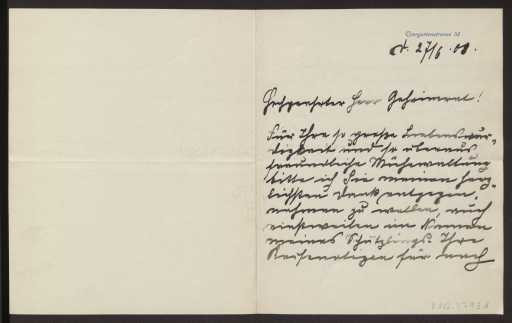 Tiergartenstrasse
d. 27/6. 08.
Hochgeehrter Herr Geheimrat!
Für Ihre so große Liebenswür-
digkeit und so überaus
freundliche Mühewaltung
bitte ich Sie meinen herz-
lichsten Dank entgegen-
nehmen zu wollen, auch
einstweilen im Namen
meines Schützlings. Ihre
Reisenotizen für